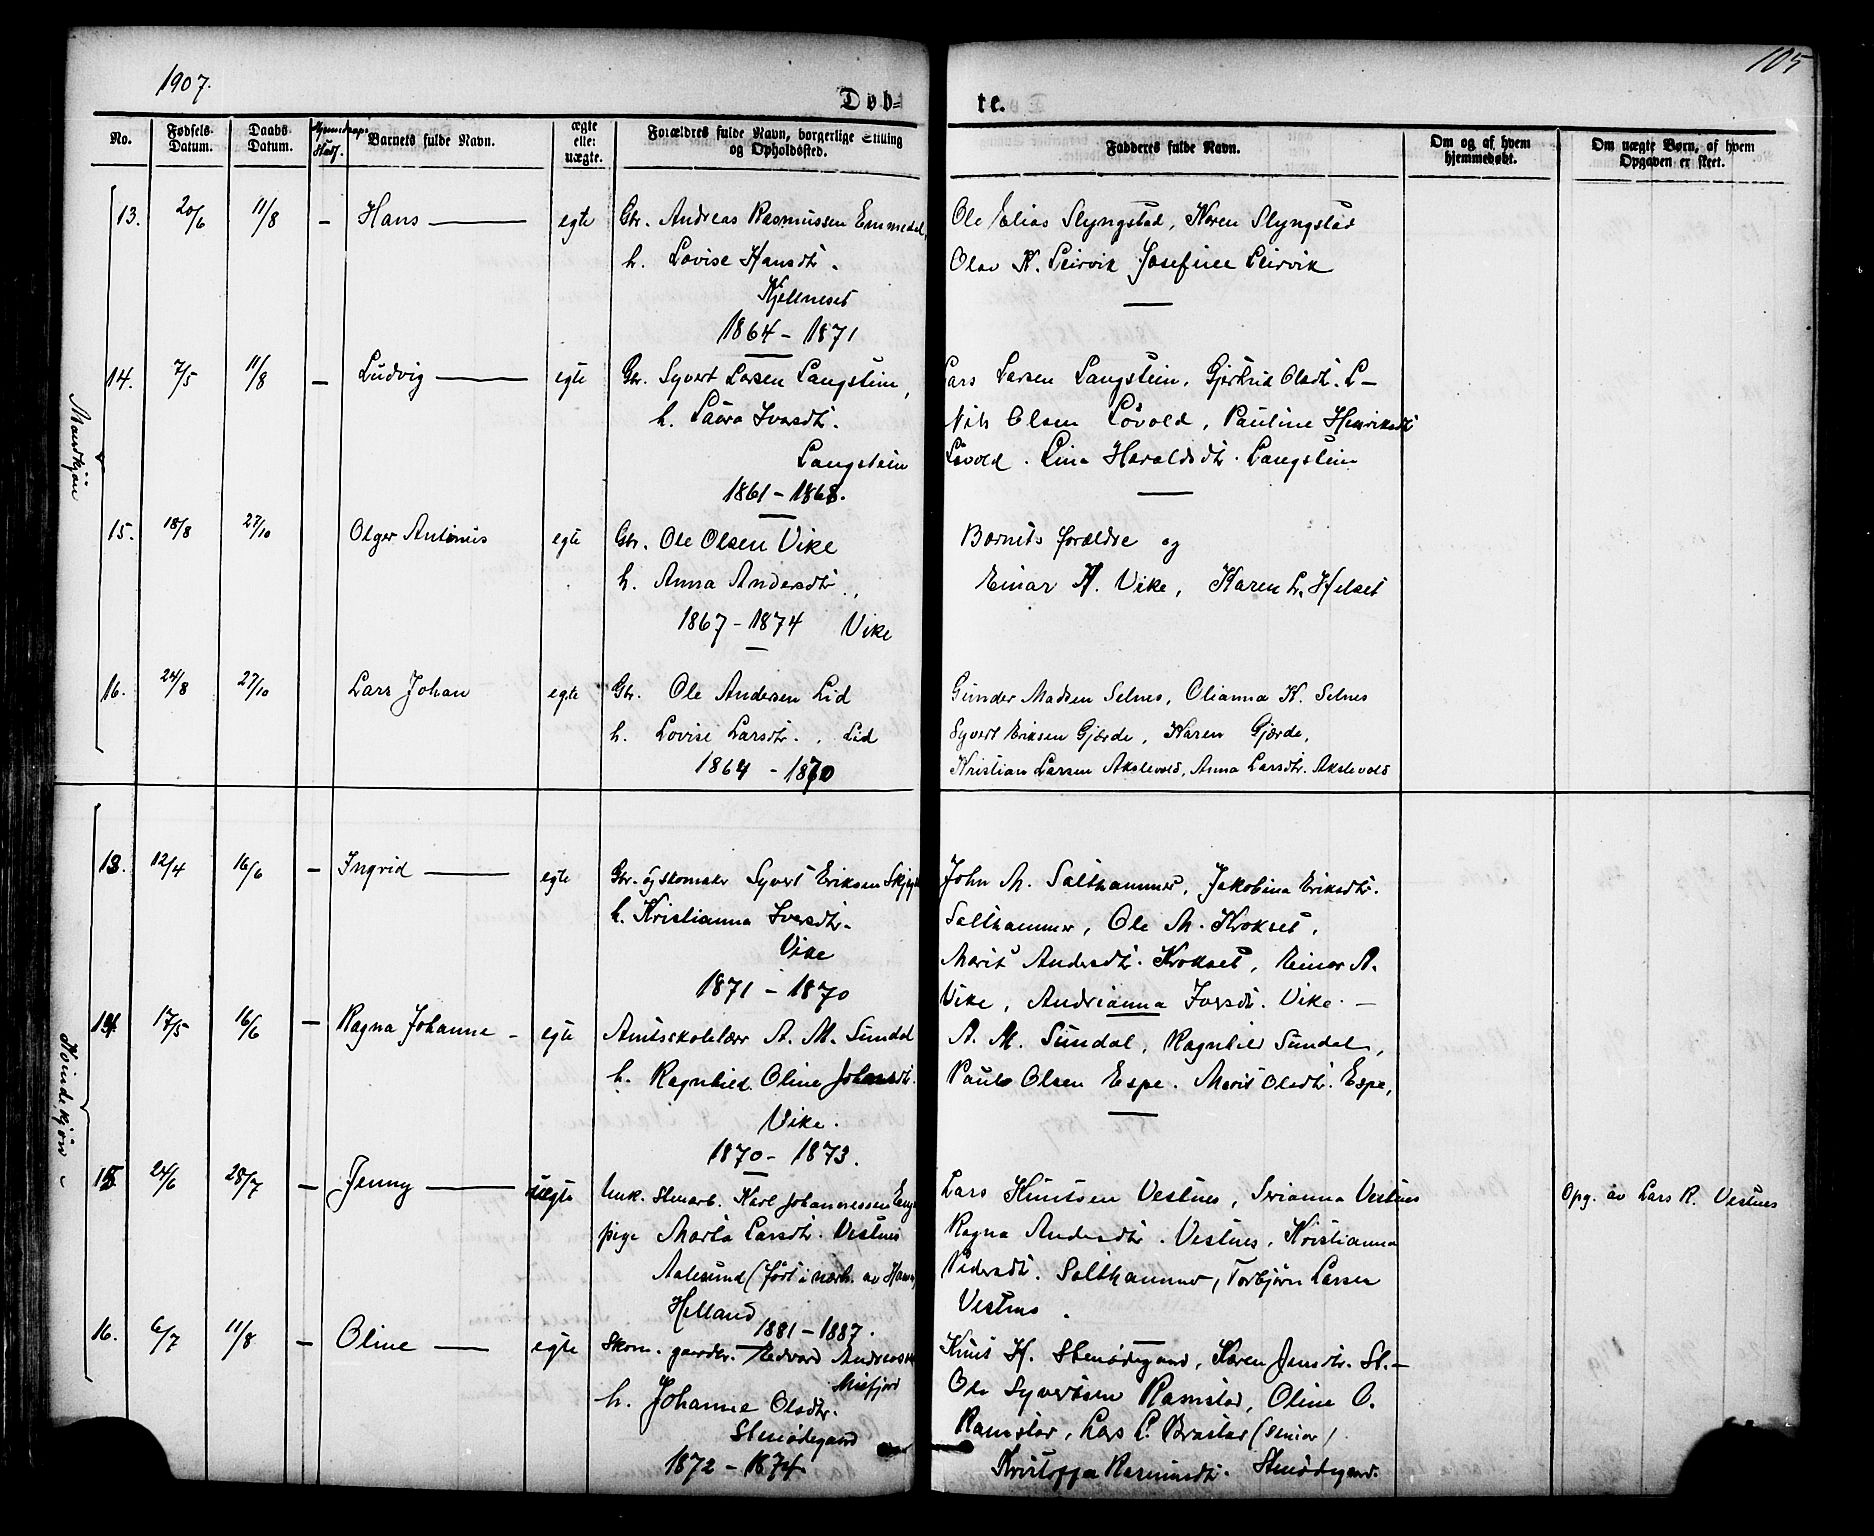 1907.
105
Døb=
te.
No.
Fødsels-
Datum.
Daabs
Datum.
Barnets fulde Navn.
ægte
eller
uægte.
Forældres fulde Navn, borgerlige Stilling
og Opholdssted.
Fadderes fulde Navn.
Om og af hvem
hjemmedøbt.
Om uægte Børn, af hvem
Opgaven er skeet.
Mandkjøn
13. 20/6 11/8 – Hans — egte Gbr. Andreas Rasmussen Emmedal,
h. Lovise Hansdtr.
Kjelneset
1864 – 1871
Ole Elias Slyngstad, Karen Slyngstad
Olav K. Leirvik Josefine Leirvik
14. 7/5 11/8 – Ludvig — egte Gbr. Syvert Larsen Langstein,
h. Laura Iversdtr.
Langstein
1861 – 1868.
Lars Larsen Langstein, Gjertrud Olsdtr. L–
Nils Olsen Løvold, Pauline Henriksdtr
Løvold. Lina Haraldsdtr. Langstein
15. 18/8 27/10 Olger Antonius egte Gbr. Ole Olsen Vike
h. Anna Andersdtr.,
1867 – 1874 Vike
Barnets forældre og
Einar K. Vike, Karen L. Helset
16. 24/8 27/10 Lars Johan egte Gbr. Ole Andersen Lid
h. Lovise Larsdtr., Lid
1864 – 1870
Gunder Madsen Selnes, Olianna K. Selnes
Syvert Eriksen Gjærde, Karen Gjærde,
Kristian Larsen Akslevold, Anna Larsdtr. Akslevold
Kvindekjøn
13. 12/4 16/6 – Ingrid — egte Gbr. og skomaker Syvert Eriksen
h. Kristianna Iversdtr.
Vike
1871 – 1870
John M. Salthammer, Jakobina Eriksdtr.
Salthammer, Ole M. Krokset,
Marit Andersdtr. Krokset, Einar A.
Vike, Andrianna Iversdtr. Vike. –
14. 17/5 16/6 – Ragna Johanne – egte Amtsskolelærer A. M. Sundal
h. Ragnhild Oline Johansdtr.
Vike.
1870 – 1873.
A. M. Sundal, Ragnhild Sundal,
Paul Olsen Espe. Marit Olsdtr. Espe,
15. 24/6 28/7 – Jenny — uægte Unk. Stenarb. Karl Johannessen
pige Marta Larsdtr. Vestnes
Aalesund (født i nærh. av
Helland
1881 – 1887.
Lars Knutsen Vestnes, Serianna Vestnes
Ragna Andersdtr. Vestnes, Kristianna
Pedersdtr. Salthammer, Torbjørn Larsen
Vestnes.
Opg. av Lars K. Vestnes
16. 6/7 11/8 – Oline — egte Skom. gaardbr. Edvard Andreassen
Misfjord
h. Johanne Olsdtr.
Stenødegaard
1872 – 1874.
Knut H. Stenødegaard, Karen Jensdtr. St.–
Ole Syvertsen Ramstad, Oline O.
Ramstad, Lars L. Brastad (senior)
Kristoffa Rasmusdtr. Stenødegaard.